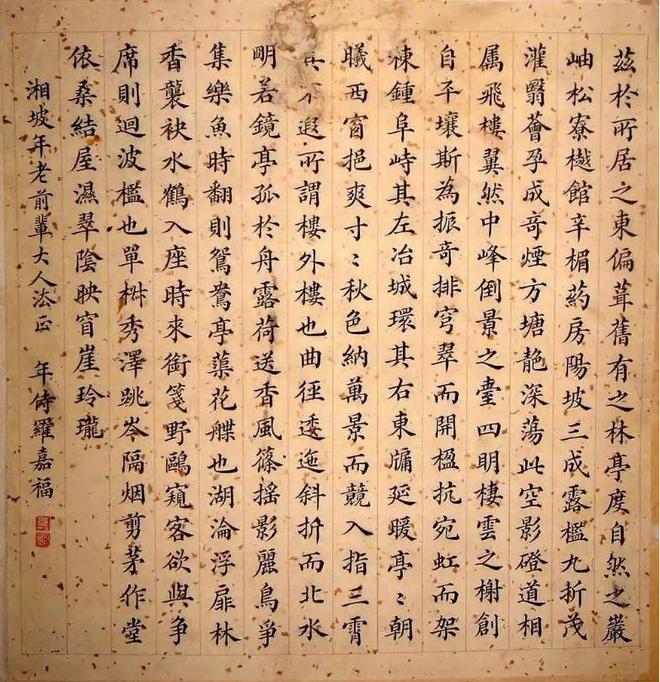 茲於所居之東偏葺舊有之林亭度自然之巖
岫松寮樾館辛楣葯房陽坡三成露檻九折茂
灌翳薈孕成竒煙方塘靘深蕩此空影磴道相
属飛樓翼然中峰倒景之臺四明棲雲之榭創
自平壤斯為振竒排穹翠而開楹抗宛虹而架
棟鍾阜峙其左冶城環其右東牖延暖亭〻朝
曦西窗挹爽寸〻秋色納萬景而競入指三霄
不遐所謂樓外樓也曲徑逶迤斜折而北水
明若鏡亭孤於舟露荷送香風篠摇影麗鳥爭
集樂魚時翻則鴛鴦亭蕖花艓也湖淪浮扉林
香襲袂水鶴入座時來銜箋野鷗窺客欲與争
席則迴波檻也單椒秀澤跳岑隔烟剪茅作堂
依桑結屋濕翠陰映窅崖玲瓏
湘坡年老前輩大人法正 年侍羅嘉福